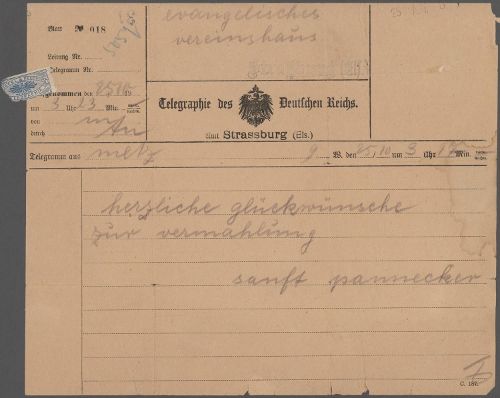 evangelisches
vereinshaus
Blatt № 018
Leitung Nr.
Telegramm Nr.
genommen den 25/10
um 3 Uhr 13 Min.
von
durch
Telegraphie des Deutschen Reichs.
Amt Strassburg (Els.)
Telegramm aus metz 9 W. den 25,10 um 3 Uhr Min.
herzliche glückwünsche
zur vermählung
sanft pannecker
C. 187.